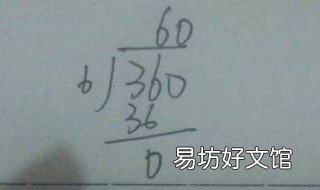 60
6)360
36
0
易坊好文馆